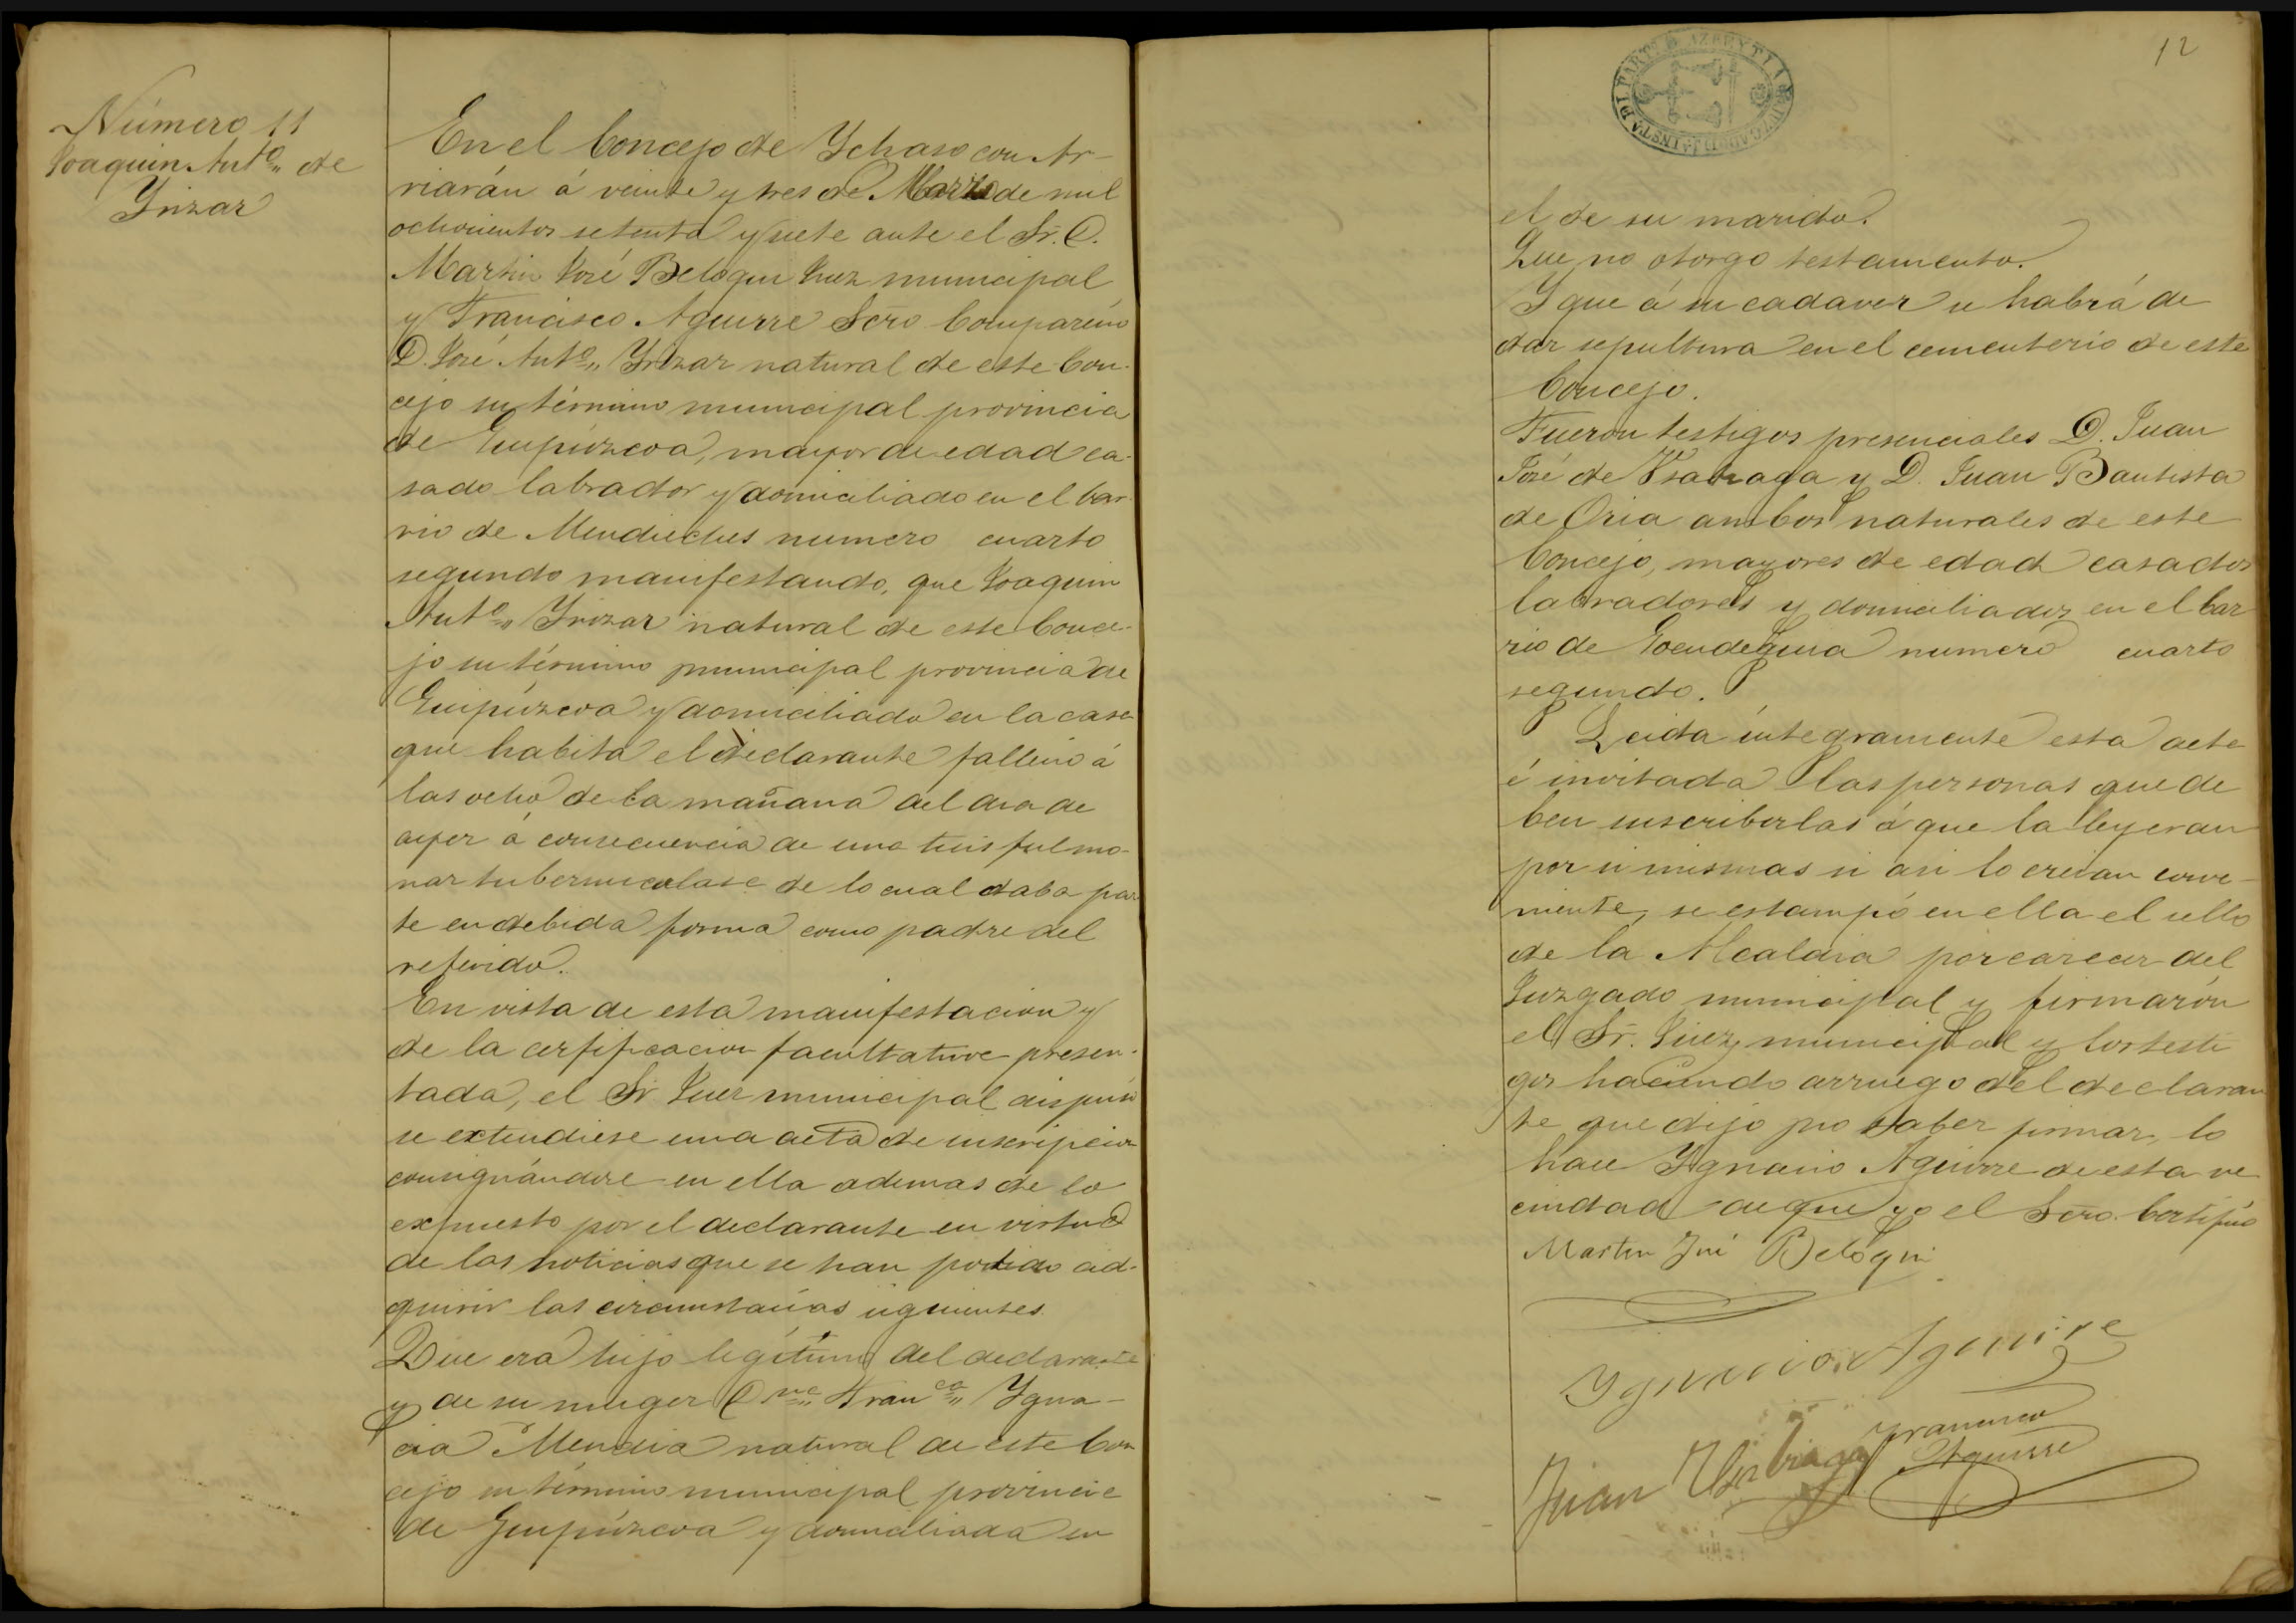 Número 11
Joaquin Antº„ de
Yrizar
En el Concejo de Ychaso con Ar-
riarán á veinte y tres de Marzo de mil
ochocientos setenta y siete ante el Sr. D.
Martin José Beloqui Juez municipal
y Francisco Aguirre Scrio Compareció
D. José Antº„ Yrizar natural de este Con-
cejo su término municipal provincia
de Guipúzcoa, mayor de edad ca-
sado labrador y domiciliado en el bar-
rio de numero cuarto
segundo manifestando, que Joaquin
Antº„ Yrizar natural de este Conce-
jo su término municipal provincia de
Guipúzcoa y domiciliado en la casa
que habita el declarante falleció á
las ocho de la mañana del dia de
ayer á consecuencia de una tisis pulmo-
nar de lo cual daba par
te en debida forma como padre del
referido.
En vista de esta manifestacion y
de la certificacion facultative presen-
tada, el Sr Juez municipal dispuso
se extendiese una acta de inscripcion
consignándose en ella ademas de lo
expuesto por el declarante en virtud
de las noticias que se han podido ad-
quirir las circunstancias siguientes.
Que era hijo legítimo del declarante
y de su muger Dña„ Francª„ Ygna-
cia Mendia natural de este Con
cejo su término municipal provincia
de Guipúzcoa y domiciliada en
12
AZPEYTIA
el de su marido.
Que no otorgo testamento.
Y que á su cadaver se habrá de
dar sepultura en el cementerio de este
Concejo.
Fueron testigos presenciales D. Juan
José de Usabiaga y D. Juan Bautista
de Oria ambos naturales de este
Concejo, mayores de edad casados
labradores y domiciliados en el bar
rio de numero cuarto
segundo.
Leida íntegramente esta acta
é invitada las personas que de
ben inscribirlas á que la leyeran
por si mismas si asi lo creian conve-
niente, se estampó en ella el sello
de la Alcaldia por carecer del
Juzgado municipal y firmarón
el Sr. Juez municipal y los testi
gos haciendo arruego del declaran
te que dijo no saber firmar, lo
hace Ygnacio Aguirre de esta ve
cindad de que yo el Scrio. Certifico
Martin José Beloqui
Ygnacio Aguirre
Francisco
Aguirre
Juan Usabiaga